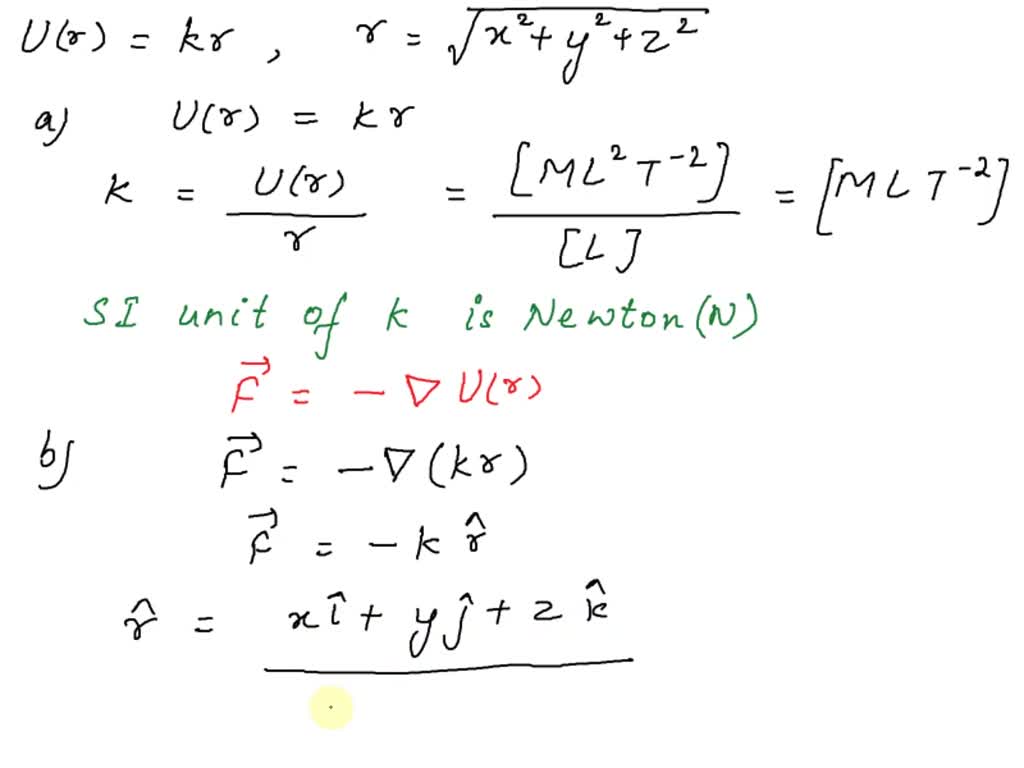 U(r) = kr, r = √(x² + y² + z²)
a) U(r) = kr
k = U(r)/r = [ML²T⁻²]/[L] = [MLT⁻²]
SI unit of k is Newton(N)
F⃗ = −∇U(r)
b) F⃗ = −∇(kr)
F⃗ = −k r̂
r̂ = xî + yĵ + zk̂